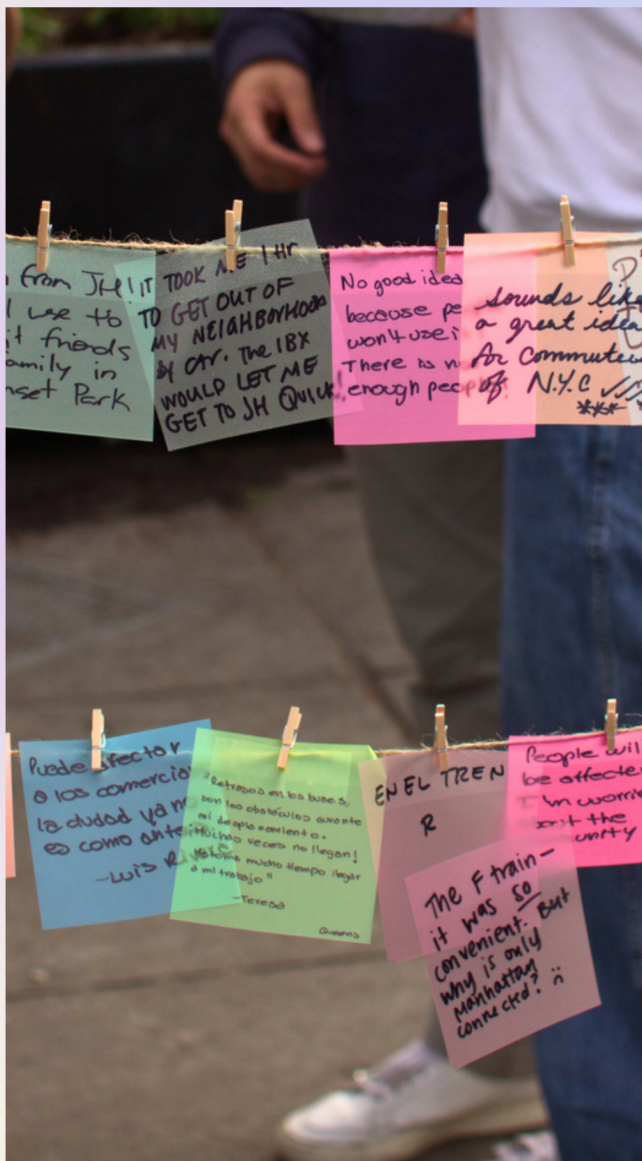 from JH!
I use to
friends
family in
Park
IT TOOK ME 1 Hr
TO GET OUT OF
MY NEIGHBORHOOD
by car. The IBX
WOULD LET ME
GET TO JH QUICK!
No good idea
because
won't use
There is
enough
sounds like
a great idea
for commuters
of N.Y.C
***
Puede afectar
a los comercio
la ciudad ya no
es como antes
-Luis
"Retrasos en los buses,
son los obstáculos durante
mi desplazamiento.
Muchas veces no llegan!
mucho tiempo llegar
a mi trabajo"
-Teresa
Queens
EN EL TREN
R
The F train-
it was so
convenient. But
why is only
Manhattan
connected? :(
People will
be affected
I'm
the